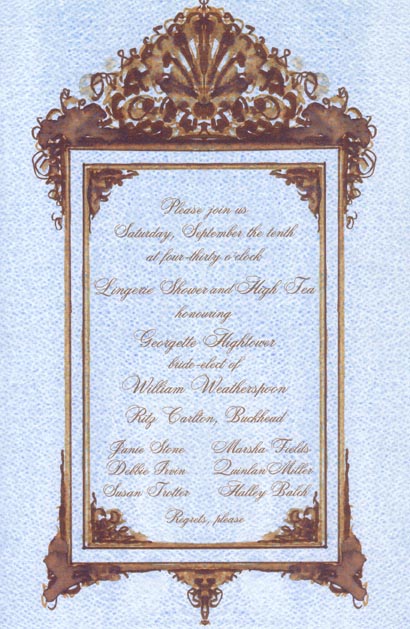 Please join us
Saturday, September the tenth
at four-thirty o'clock
Lingerie Shower and High Tea
honouring
Georgette Hightower
bride-elect of
William Weatherspoon
Ritz Carlton, Buckhead
Janie Stone Marsha Fields
Debbie Irvin Quinlan Miller
Susan Trotter Halley Balch
Regrets, please